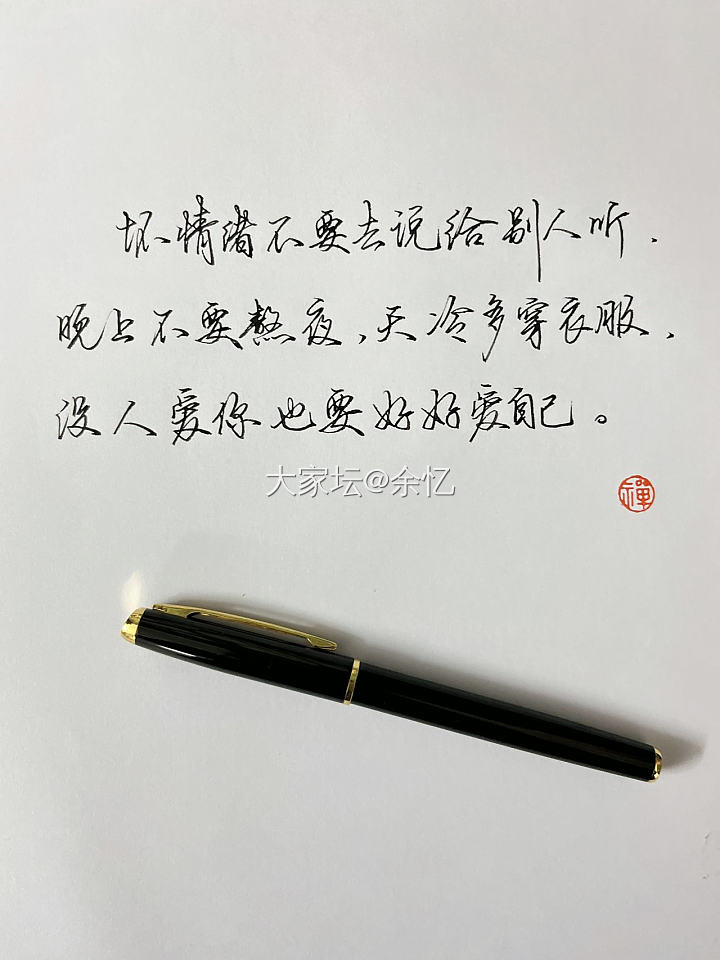 坏情绪不要去说给别人听,
晚上不要熬夜,天冷多穿衣服,
没人爱你也要好好爱自己。
大家坛@余忆
禅